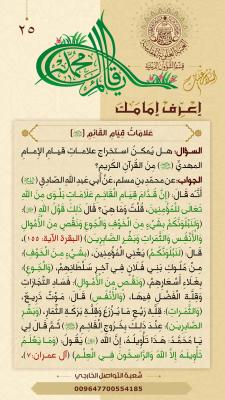 ٢٥
إعرف إمامك
علامات قيام القائم [ﷺ]
السؤال: هل يمكن استخراج علامات قيام الإمام
المهدي (ﷺ) من القرآن الكريم؟
الجواب: عن محمد بن مسلم، عن أبي عبد الله الصادق (ﷺ)
أنه قال: (إن قدام قيام القائم علامات بلوى من الله
تعالى للمؤمنين، قلت وما هي؟ قال ذلك قول الله (ﷻ):
(وَلَنَبْلُوَنَّكُمْ بِشَيْءٍ مِنَ الْخَوْفِ وَالْجُوعِ وَنَقْصٍ مِنَ الْأَمْوَالِ
وَالْأَنْفُسِ وَالثَّمَرَاتِ وَبَشِّرِ الصَّابِرِينَ) (البقرة الآية: ١٥٥)،
قال: (وَلَنَبْلُوَنَّكُمْ) يعني المؤمنين، (بِشَيْءٍ مِنَ الْخَوْفِ)
من ملوك بني فلان في آخر سلطانهم، (وَالْجُوعِ)
بغلاء أسعارهم، (وَنَقْصٍ مِنَ الْأَمْوَالِ) فساد التجارات
وقلة الفضل فيها، (وَالْأَنْفُسِ) قال: موت ذريع،
(وَالثَّمَرَاتِ): قلة ريع ما يزرع وقلة بركة الثمار، (وَبَشِّرِ
الصَّابِرِينَ): عند ذلك بخروج القائم (ﷺ) ثم قال لي
يا محمد: هذا تأويله، إن الله (ﷻ) يقول: (وَمَا يَعْلَمُ
تَأْوِيلَهُ إِلَّا اللَّهُ وَالرَّاسِخُونَ فِي الْعِلْمِ) (آل عمران: ٧).
شعبة التواصل الخارجي
009647700554185